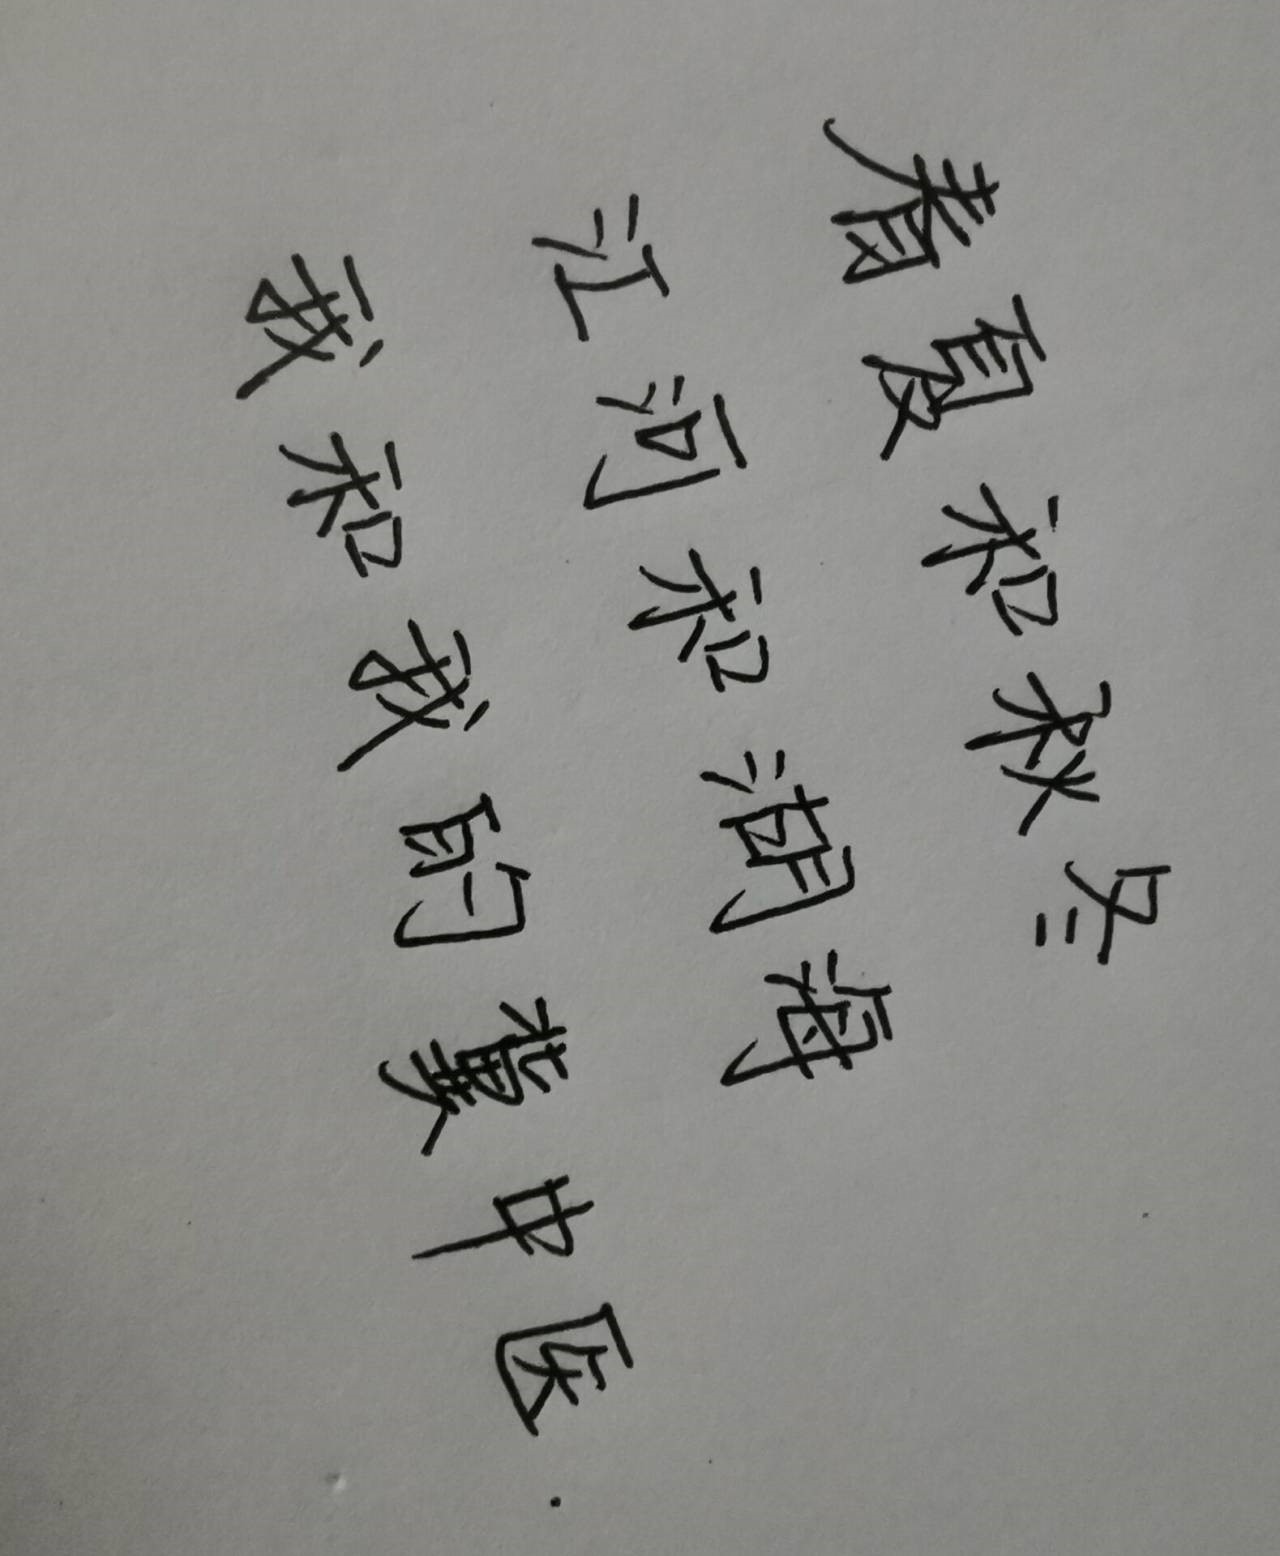 春夏和秋冬
江河和湖海
我和我的黄中医